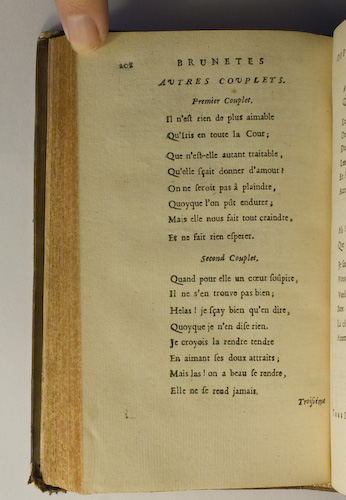 202 BRUNETES
AUTRES COUPLETS.
Premier Couplet.
Il n'est rien de plus aimable
Qu'Iris en toute la Cour;
Que n'est-elle autant traitable,
Qu'elle sçait donner d'amour!
On ne seroit pas à plaindre,
Quoyque l'on pût endurer;
Mais elle nous fait tout craindre,
Et ne fait rien esperer.
Second Couplet.
Quand pour elle un cœur soûpire,
Il ne s'en trouve pas bien;
Helas! je sçay bien qu'en dire,
Quoyque je n'en dise rien.
Je croyois la rendre tendre
En aimant ses doux attraits;
Mais las! on a beau se rendre,
Elle ne se rend jamais.
Troisiéme